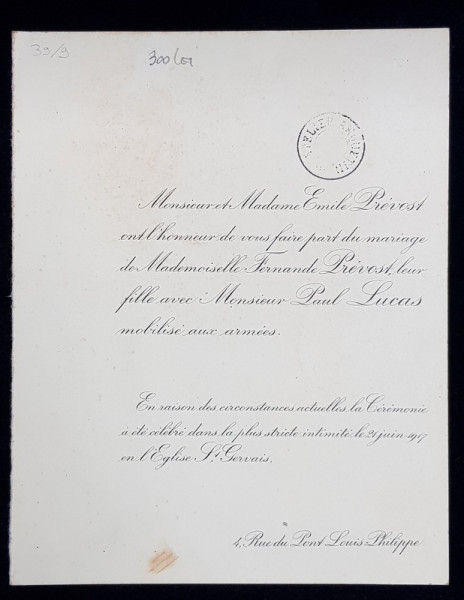 39/9
300 lei
Monsieur et Madame Emile Prévost
ont l'honneur de vous faire part du mariage
de Mademoiselle Fernande Prévost, leur
fille avec Monsieur Paul Lucas
mobilisé aux armées.
En raison des circonstances actuelles, la Cérémonie
a été célébré dans la plus stricte intimité, le 21 juin 1917
en l'Eglise St Gervais.
4, Rue du Pont Louis-Philippe